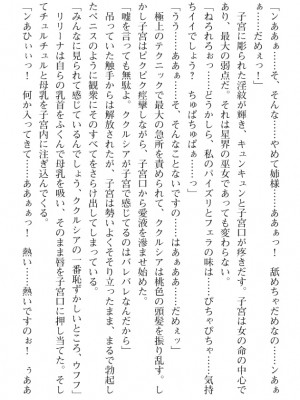 「ンああぁっ…あ、そんな…やめて姉様…ああぁっ！　舐めちゃだめなの…ンあぁ
ぁ…だめぇっ！」
　子宮に彫られた淫紋が輝き、キュンキュンと子宮口が疼きだす。子宮は女の命の中心で
あり、最大の弱点だ。それは星界の巫女であっても変わらない。
「ねろれろぉっ…どうかしら、私のパイズリとフェラの味は……ぴちゃぴちゃ……気持
チイイでしょう？　ちゅぱちゅぱぁっ…」
「うう…ああぁっ…そ、そんなことないですの…はぁぁあ……だめェッ」
　極上のテクニックで最大の急所を責められて、ククルシアは桃色の頭髪を振り乱す。し
かし子宮はビクビク痙攣しながら、子宮口から愛液を滲ませ始めた。
「嘘を言っても無駄よ。ククルシアが子宮で感じてるのはバレバレなんだから」
　吊っていた触手からは解放されたが、子宮は勢いよくそそり立ったまま、まるで勃起し
たペニスのように観衆にそのすべてをさらけ出してしまう。
「みんなに見られて感じているんでしょう、ククルシアの一番恥ずかしいところ、ウフフ」
　リリーナは自らの乳首をふくんで母乳を吸い、そのまま唇を子宮口に押し当てた。そし
てチュルチュルと母乳を子宮内に注ぎ込んでくる。
「ンあひぃいっ　何か入ってきて……ああぁぁっ！　熱い……熱いですのぉ！　ぅああ